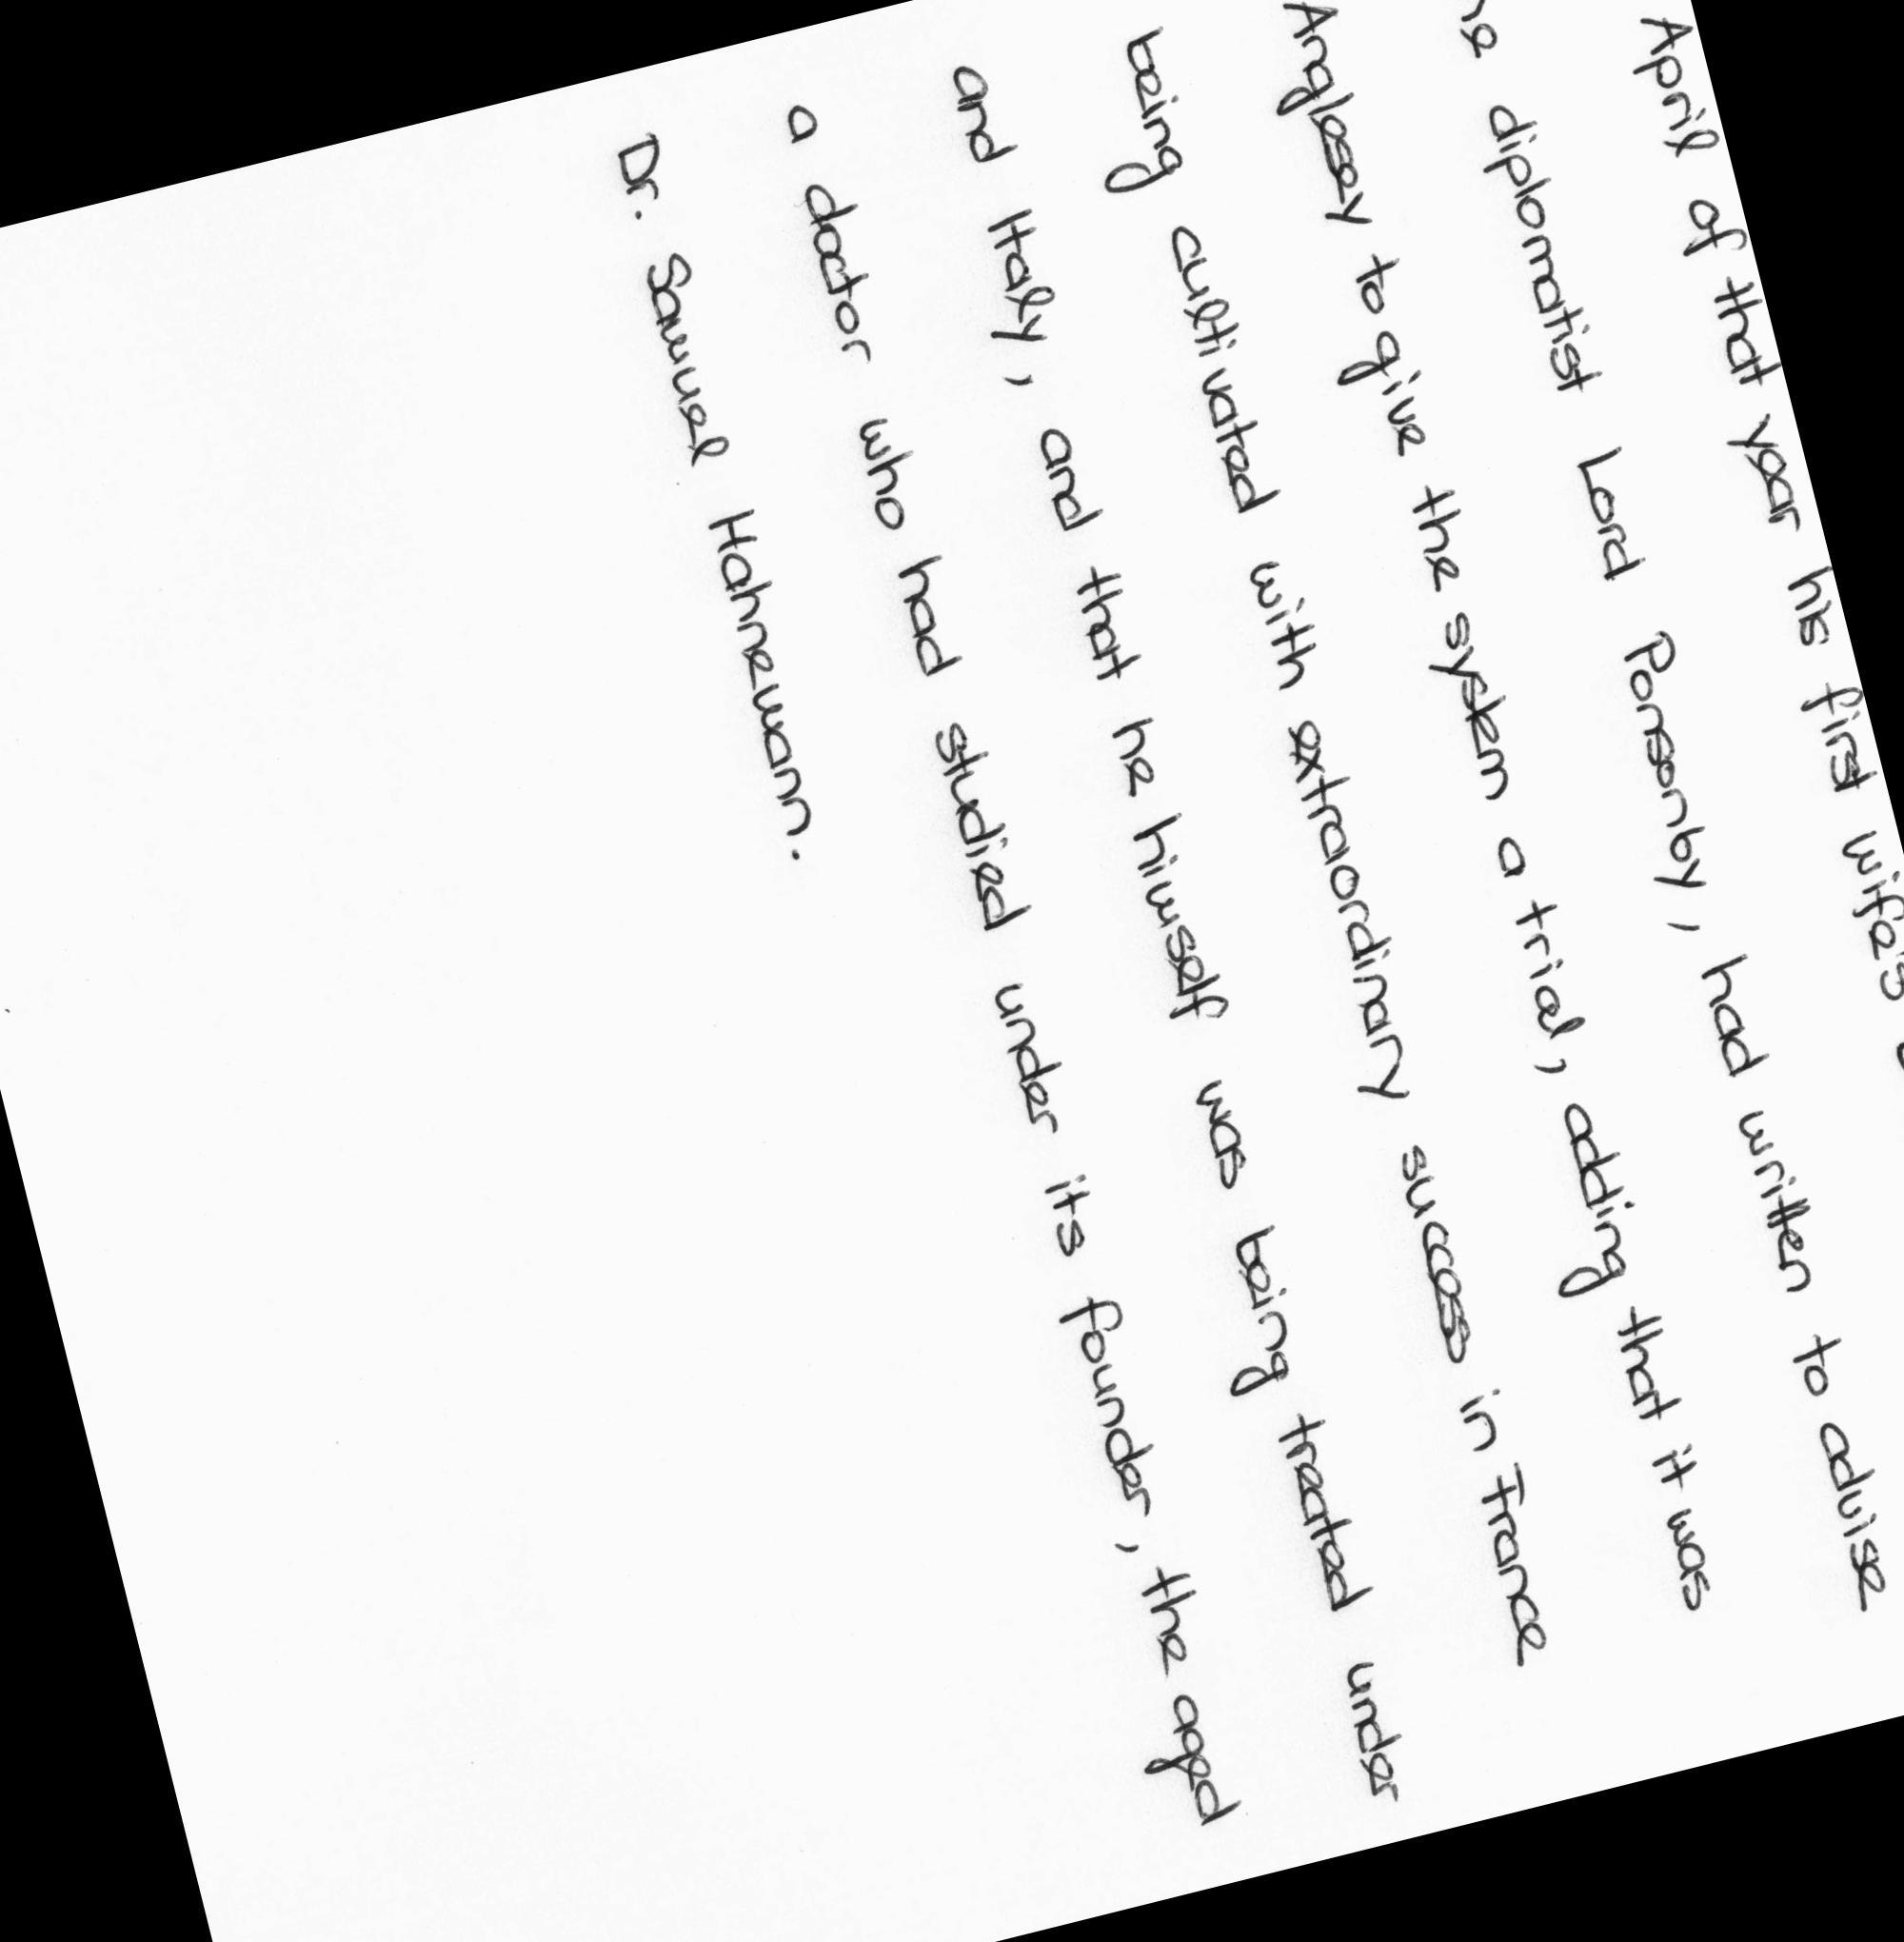 April of that year his first wife's
diplomatist Lord Ponsonby, had written to advise
Anglesey to give the system a trial, adding that it was
being cultivated with extraordinary success in France
and Italy, and that he himself was being treated under
a doctor who had studied under its founder, the aged
Dr. Samuel Hahnemann.